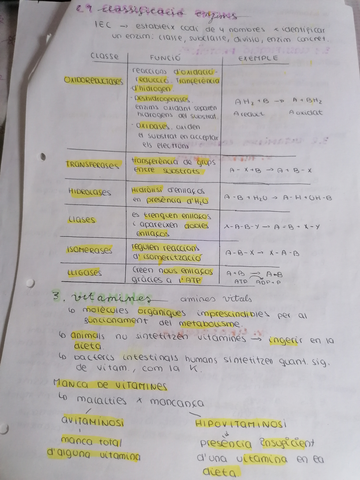 2.9. classificació enzims
IEC → estableix codi de 4 nombres x identificar
un enzim: classe, subclasse, divisió, enzim concret
CLASSE FUNCIÓ EXEMPLE
OXIDOREDUCTASES reaccions d'oxidació
reducció. Transferència
d'hidrogen
Deshidrogenases
enzims oxidant aparten
hidrògens del substrat
AH2 + B → A + BH2
A reduït A oxidat
Oxidases, oxiden
el substrat en acceptar
els electrons
TRANSFERASES transferència de grups
entre substrats
A-X + B → A + B-X
HIDROLASES Hidròlisi d'enllaços
en presència d'H2O
A-B + H2O → A-H + OH-B
LIASES es trenquen enllaços
i apareixen dobles
enllaços
X-A-B-Y → A=B + X-Y
ISOMERASES regulen reaccions
d'isomerització
A-B-X → X-A-B
LLIGASES Creen nous enllaços
gràcies a l'ATP
A+B → A-B
ATP ADP+P
3. vitamines amines vitals
↳ molècules orgàniques imprescindibles per al
funcionament del metabolisme.
↳ animals no sintetitzen vitamines → ingerir en la
dieta.
↳ bacteris intestinals humans sintetitzen quant sig.
de vitam, com la K
MANCA DE VITAMINES
↳ malalties x mancança
AVITAMINOSI HIPOVITAMINOSI
manca total
d'alguna vitamina
presència insuficient
d'una vitamina en la
dieta.